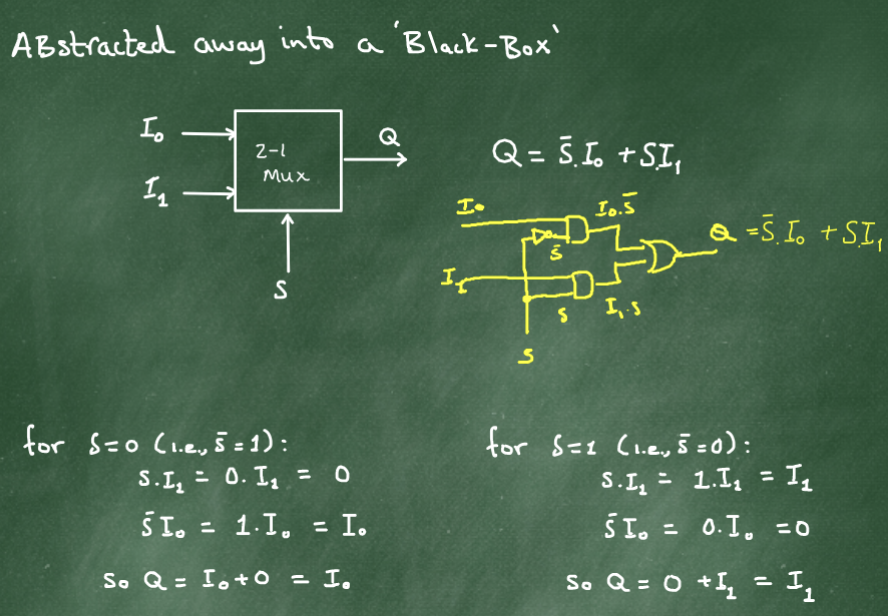 ABstracted away into a 'Black-Box'
I₀
I₁
2-1
Mux
Q
S
Q = S̄.I₀ + SI₁
I₀
I₀.S̄
S̄
Q = S̄.I₀ + SI₁
I₁
S
I₁.S
S
for S=0 (i.e., S̄=1):
S.I₁ = 0.I₁ = 0
S̄ I₀ = 1.I₀ = I₀
So Q = I₀+0 = I₀
for S=1 (i.e., S̄=0):
S.I₁ = 1.I₁ = I₁
S̄ I₀ = 0.I₀ =0
So Q = 0 +I₁ = I₁